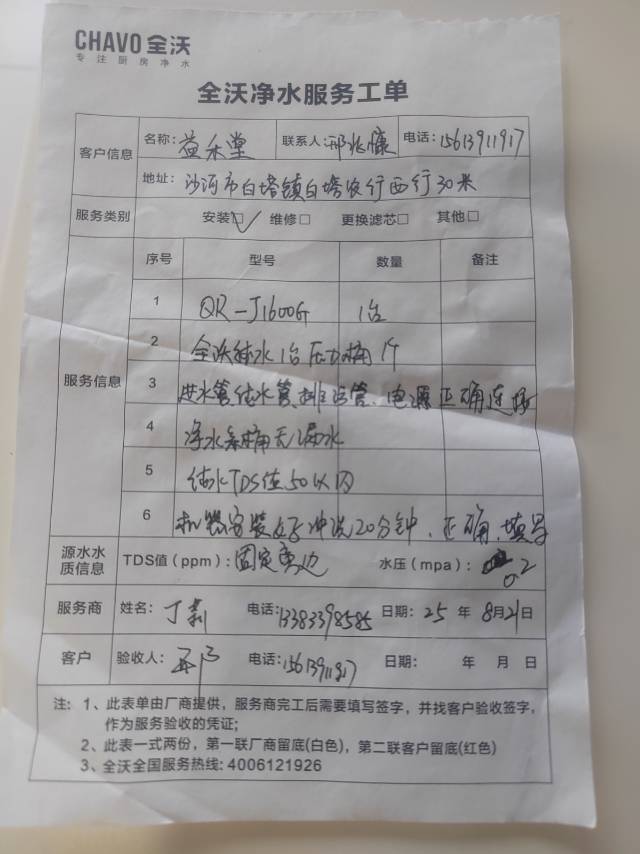 CHAVO 全沃
专注厨房净水
全沃净水服务工单
客户信息 名称: 益禾堂 联系人: 电话: 15613911917
地址: 沙河市白塔镇白塔农行西行30米
服务类别 安装☑ 维修□ 更换滤芯□ 其他□
服务信息 序号 型号 数量 备注
1 QR-J1600G 1台
2 全沃纯水1台压力桶1个
3 进水管纯水管、排污管、电源正确连接
4 净水条桶无漏水
5 纯水TDS值50以内
6 机器安装好冲洗20分钟、正确填写
源水水质信息 TDS值(ppm): 固定 水压(mpa): 0.2
服务商 姓名: 丁 电话: 13383398585 日期: 25 年 8月21日
客户 验收人: 电话: 15613911917 日期: 年 月 日
注: 1、此表单由厂商提供，服务商完工后需要填写签字，并找客户验收签字，
作为服务验收的凭证;
2、此表一式两份，第一联厂商留底(白色)，第二联客户留底(红色)
3、全沃全国服务热线: 4006121926